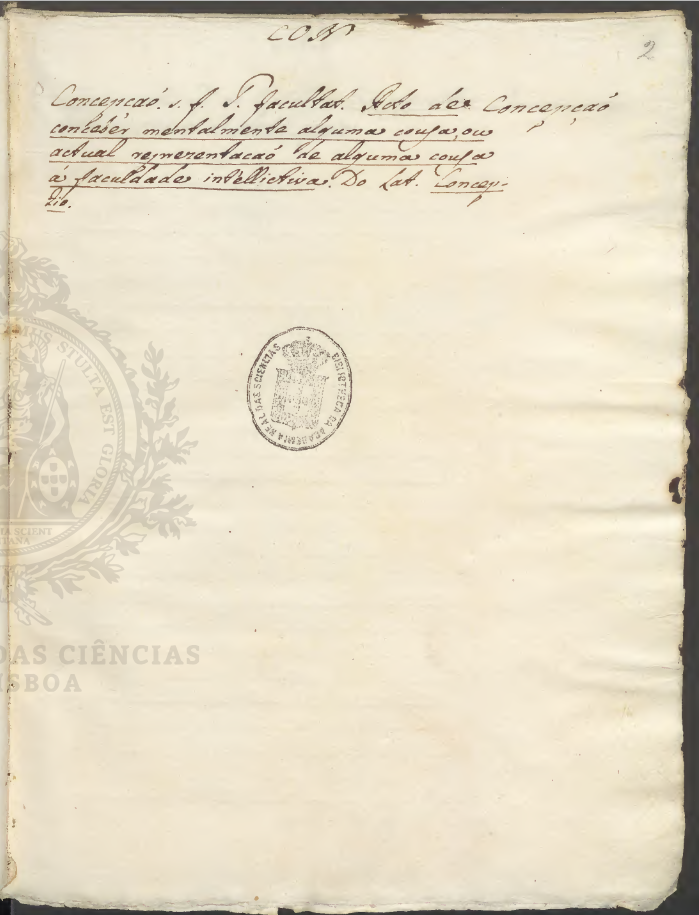 CON
2
Concepcaó. s. f. T. facultat. Acto de Concepçaó
concebér mentalmente alguma cousa, ou
actual reprezentacaó de alguma cousa
á faculdade intellictiva. Do Lat. Concep-
tio.
BIBLIOTHECA DA ACADEMIA REAL DAS SCIENCIAS
STULTIA EST GLORIA
DAS CIÊNCIAS
ISBOA